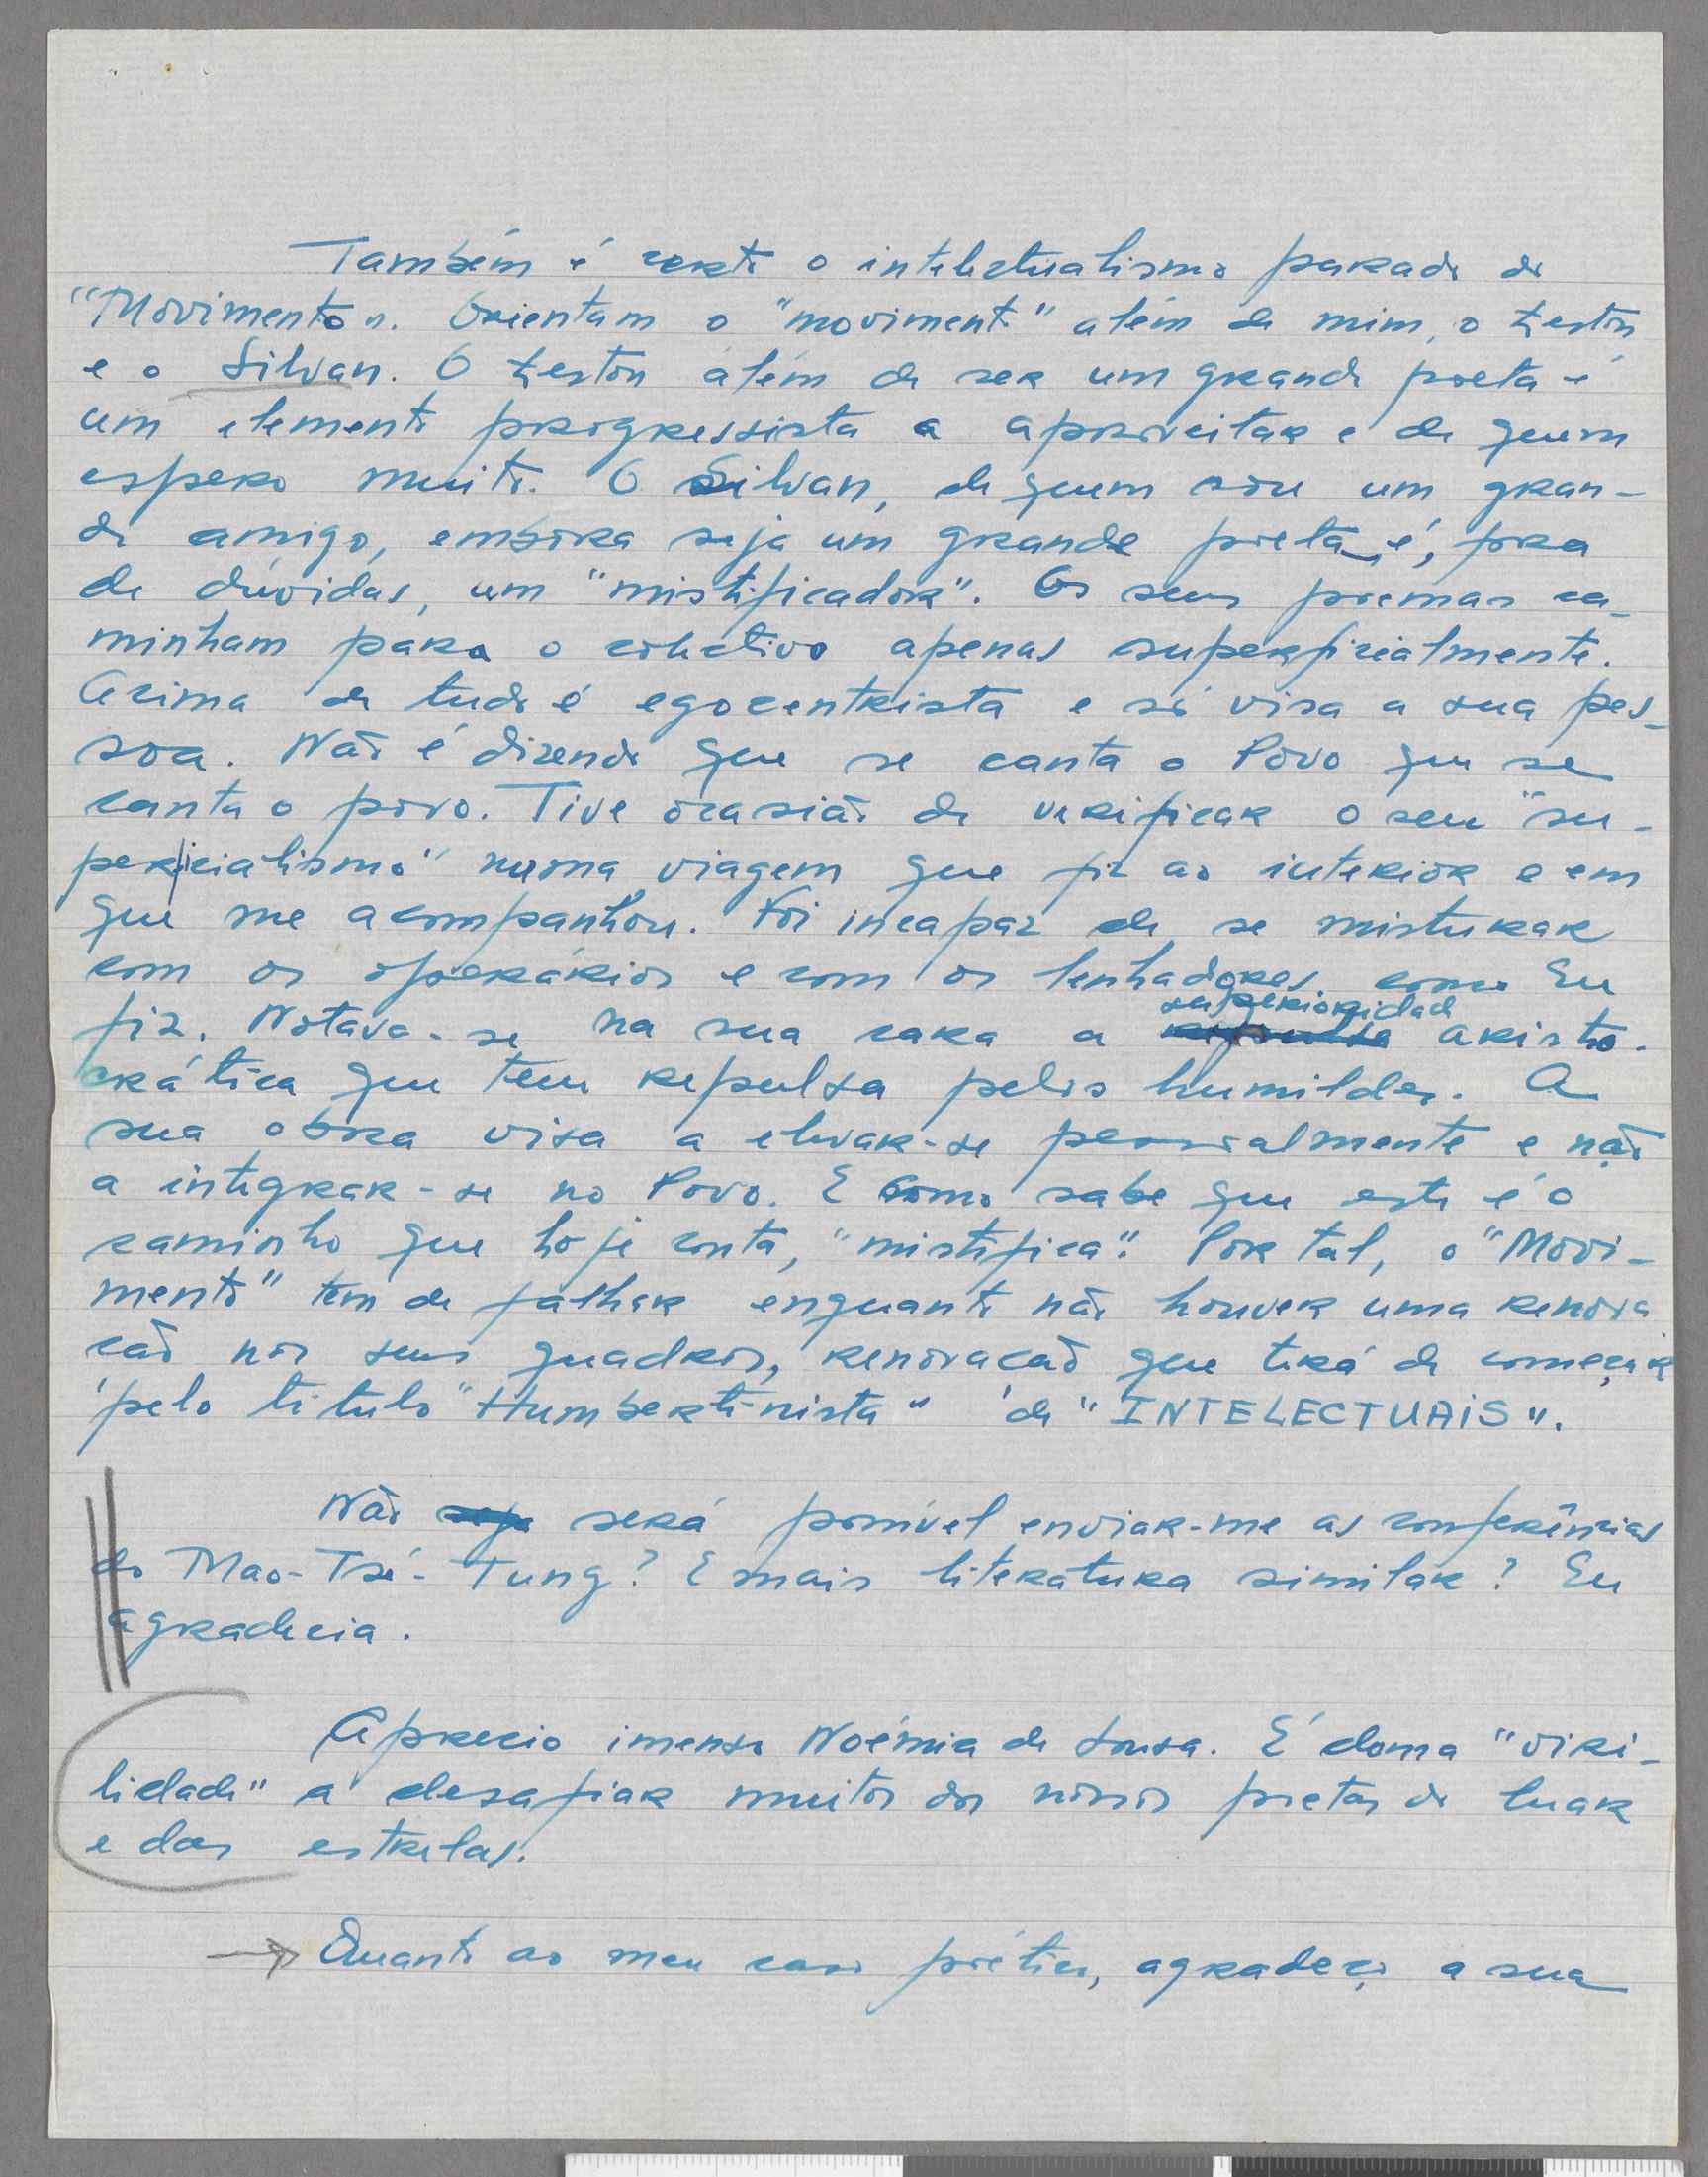 Também é certo o intelectualismo parado do
"Movimento". Orientam o "movimento" além de mim, o Leston
e o Silvan. O Leston além de ser um grande poeta é
um elemento progressista a aproveitar e de quem
espero muito. O Silvan, de quem sou um gran-
de amigo, embora seja um grande poeta é, fora
de dúvidas, um "mistificador". Os seus poemas ca-
minham para o colectivo apenas superficialmente.
Acima de tudo é egocentrista e só visa a sua pes-
soa. Não é dizendo que se canta o Povo que se
canta o povo. Tive ocasião de verificar o seu "su-
perficialismo" numa viagem que fiz ao interior e em
que me acompanhou. Foi incapaz de se misturar
com os operários e com os lenhadores como Eu
fiz. Notava-se na sua cara a superioridade aristo-
crática que tem repulsa pelos humildes. A
sua obra visa a elevar-se pessoalmente e não
a integrar-se no Povo. E como sabe que este é o
caminho que hoje conta, "mistifica". Por tal, o "Movi-
mento" tem de falhar enquanto não houver uma renova
cão nos seus quadros, renovacão que terá de começar
pelo titulo "Humbertinista" de "INTELECTUAIS".
Não será possível enviar-me as conferências
do Mao-Tsé-Tung? E mais literatura similar? Eu
agradecia.
Aprecio imenso Noémia de Sousa. É duma "viri-
lidade" a desafiar muitos dos nossos poetas do luar
e das estrelas.
Quanto ao meu caso poético, agradeço a sua